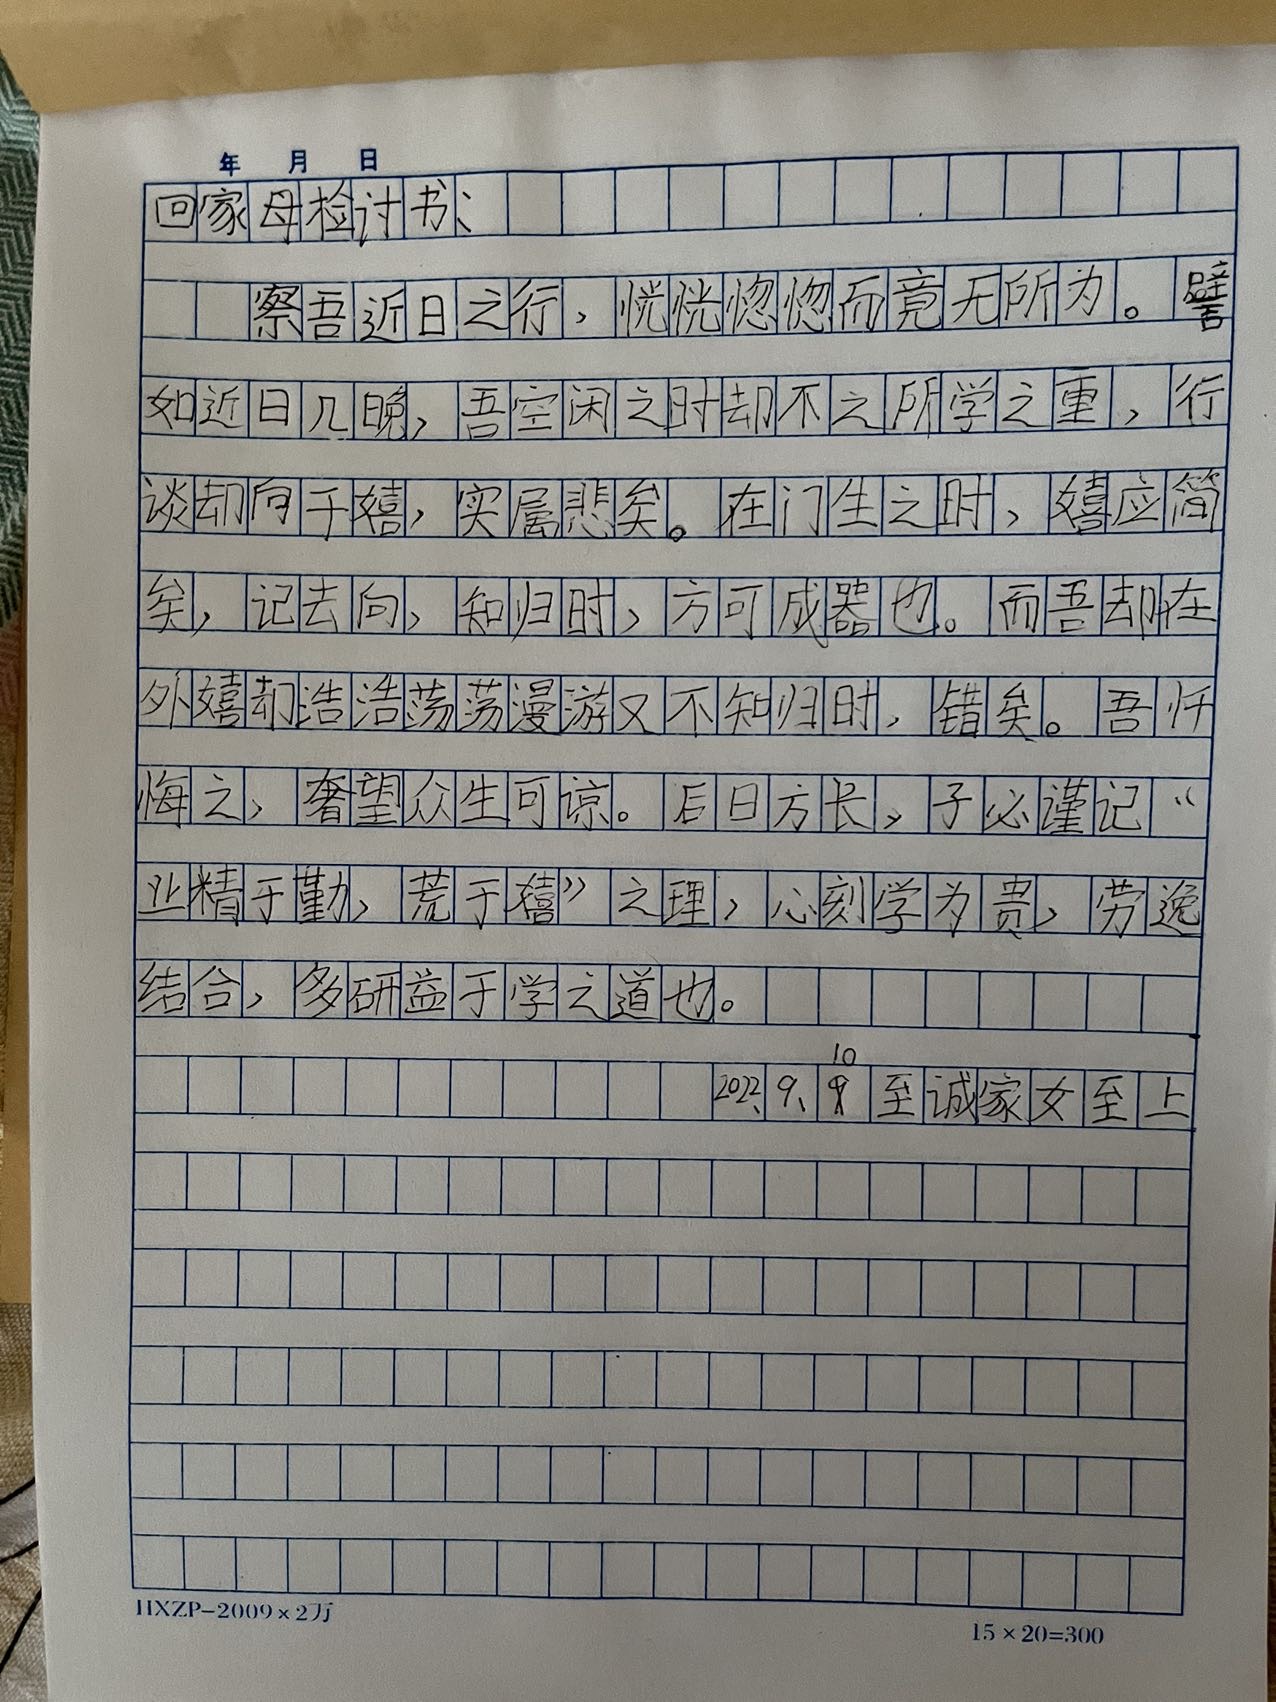 年 月 日
回家母检讨书、
察吾近日之行，恍恍惚惚而竟无所为。譬
如近日几晚，吾空闲之时却不之所学之重，行
谈却向于嬉，实属悲矣。在门生之时，嬉应简
矣，记去向，知归时，方可成器也。而吾却在
外嬉却浩浩荡荡漫游又不知归时，错矣。吾忏
悔之，奢望众生可谅。后日方长，子必谨记“
业精于勤，荒于嬉”之理，心刻学为贵，劳逸
结合，多研益于学之道也。
10
2022、9、至诚家女至上
HXZP-2009×2万
15×20=300